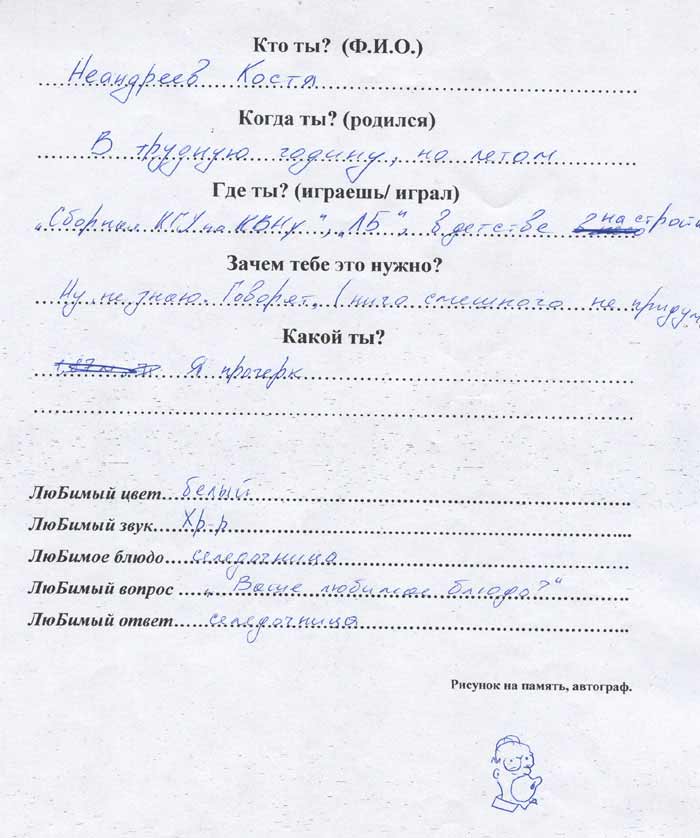 Кто ты? (Ф.И.О.)
Неандреев Костя
Когда ты? (родился)
В трудную годину, но летом
Где ты? (играешь/ играл)
„Сборная КГУ по КВНу“, „ЛБ“, в детстве на стройк
Зачем тебе это нужно?
Ну не знаю. Говорят, книга смешного не придум
Какой ты?
Я прочерк
ЛюБимый цвет белый
ЛюБимый звук Хр.р
ЛюБимое блюдо селедочница
ЛюБимый вопрос „Ваше любимое блюдо?“
ЛюБимый ответ селедочница
Рисунок на память, автограф.